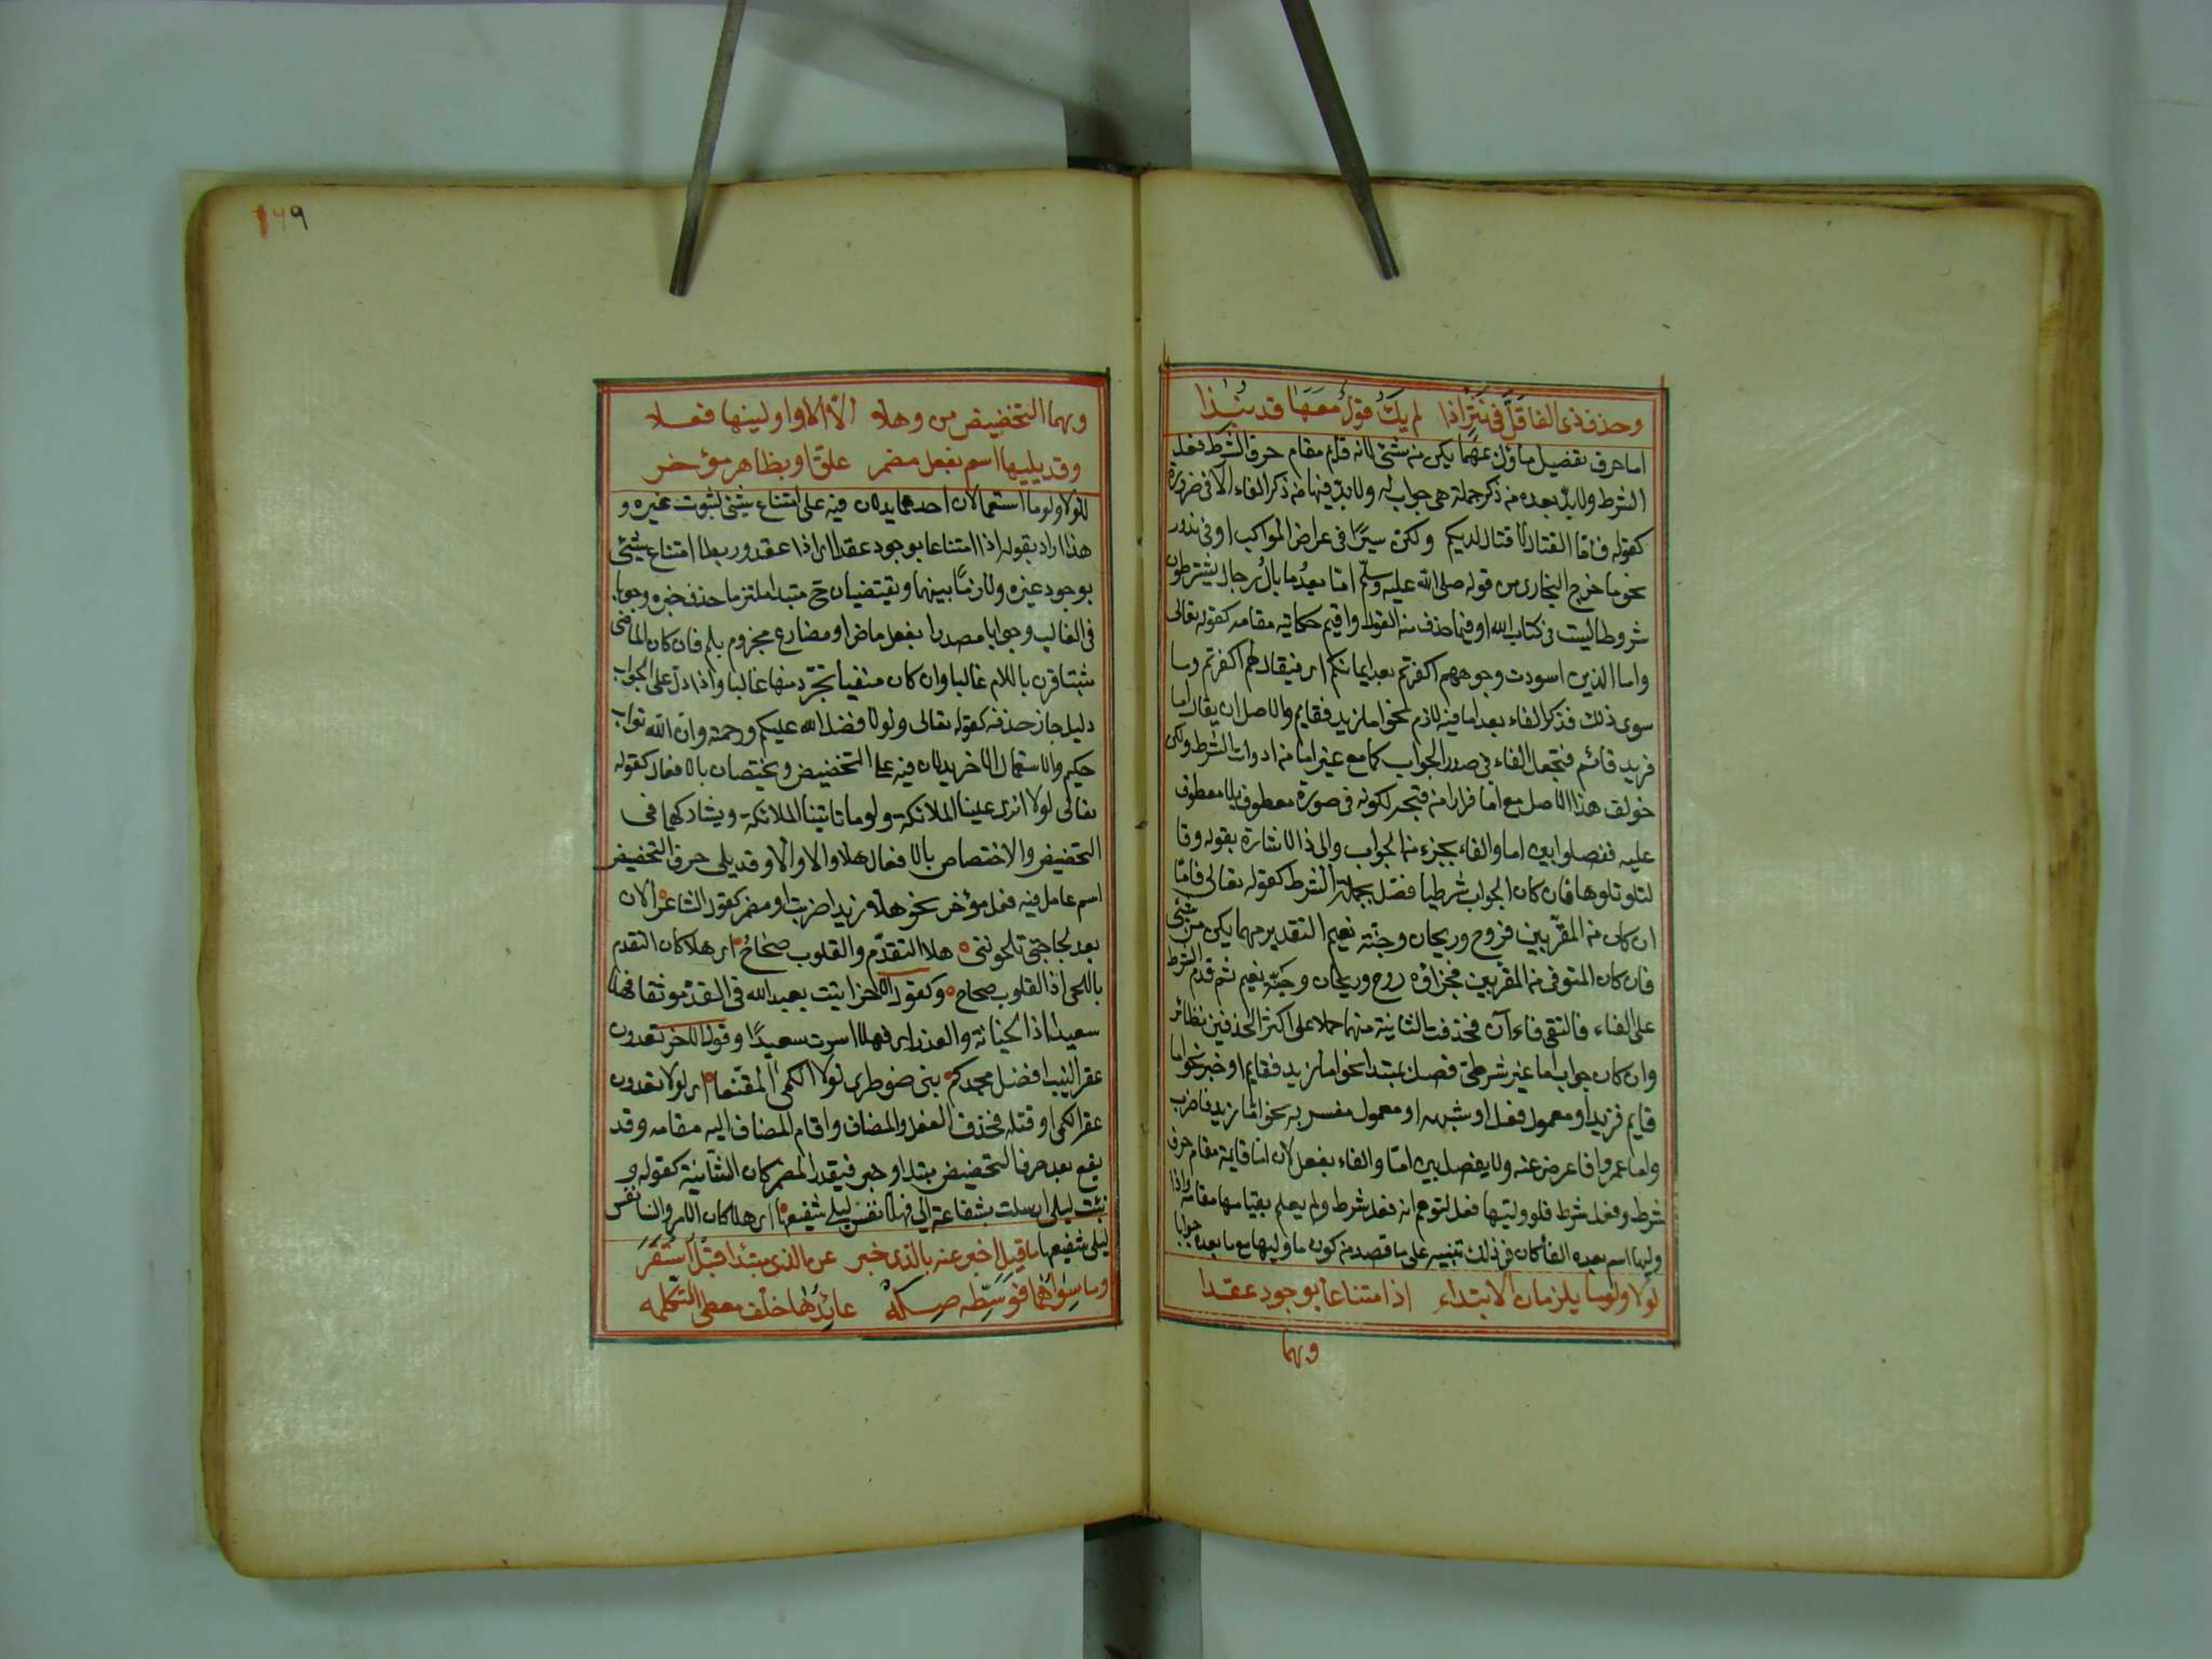 وحذف ذى الفا قَلَّ فى نَثْرٍ اذا لم يَكُ قولٌ مَعَهَا قد نُبذا
اما حرف تفضيل ماؤل عهما يكن من شئ لانه قام مقام حرف الشرط وفعل
الشرط ولا بدّ بعده من ذكر جملة هى جواب له ولا بدّ فيها من ذكر الفاء الا فى ضرورة
كقوله فامّا القتال لا قتال لديكم ولكنّ سيرًا فى عراض المواكب او فى ندور
نحو ما خرج البخارى من قوله صلى الله عليه وسلّم امّا بعدُ ما بالُ رجال يشترطون
شروطا ليست فى كتاب الله او فيما حذف منه القول واقيم حكايته مقامه كقوله تعالى
واما الذين اسودت وجوههم اكفرتم بعد ايمانكم اى فيقال لهم اكفرتم وما
سوى ذلك فذكر الفاء بعد اما فيه لازم نحو اما زيد فقايم والاصل ان يقال اما
فزيد قائم فتجعل الفاء فى صدر الجواب كما مع غير اما من ادوات الشرط ولكن
خولف هذا الاصل مع اما فرارا من قبحه لكونه فى صورة معطوف بلا معطوف
عليه ففصلوا بين اما والفاء بجزء من الجواب والى ذا الاشارة بقوله وفا
لتلو تلوها فان كان الجواب شرطيا فصل بجملة الشرط كقوله تعالى فامّا
ان كان من المقرّبين فروح وريحان وجنّة نعيم التقدير مهما يكن من شئ
فان كان المتوفى من المقربين فجزاؤه روح وريحان وجنّة نعيم ثم قدم الشرط
على الفاء فالتقى فاءآن فحذفت الثانية منهما حملا على اكثر الحذفين نظائر
وان كان جواب اما غير شرطى فصل بمبتدا نحو اما زيد فقايم او خبر نحو اما
قايم فزيد او معمول فعل او شبهه او معمول مفسر به نحو امّا زيد فاضرب
واما عمروا فاعرض عنه ولا يفصل بين امّا والفاء بفعل لان اما قايمة مقام حرف
شرط وفعل شرط فلو وليها فعل لتوهم انه فعل شرط ولم يعلم بقيامها مقامه واذا
وليها اسم بعده الفاء كان فى ذلك تنبيه على ما قصد من كون ما وليها مع ما بعده جوابا
لولا ولوما يلزمان الابتداء اذا امتناعا بوجود عقدا
وبهما
١٦٩
وبهما التحضيض من وهلّا الّا الا واولينها فعلا
وقد يليها اسم بفعل مضمر علق او بظاهر مؤخر
للولا ولوما استعمالان احدهما يدلان فيه على امتناع شئ لثبوت غيره و
هذا اراد بقوله اذا امتناعا بوجود عقدا اى اذا عقد وربطا امتناع شئ
بوجود غيره ولازمًا بينهما ويقتضيان ح مبتدا ملتزما حذف خبره وجوبا
فى الغالب وجوابا مصدرا بفعل ماض او مضارع مجزوم بلم فان كان الماضى
مثبتا قرن باللام غالبا وان كان منفيا تجرّد منها غالبا واذا دلّ على الجواب
دليل جاز حذفه كقوله تعالى ولولا فضل الله عليكم ورحمته وان الله تواب
حكيم والاستعمال الاخر يدلان فيه على التحضيض ويختصان بالافعال كقوله
تعالى لولا انزل علينا الملائكة ولوما تاتينا الملائكة ويشاركهما فى
التحضيض والاختصاص بالافعال هلّا والا والّا وقد يلى حرف التحضيض
اسم عامل فيه فعل مؤخر نحو هلّا زيدا ضربت او مضمر كقول الشاعر الان
بعد لجاجتى تلحوننى هلا التقدّم والقلوب صحاحُ اى هلا كان التقدم
باللحى اذ القلوب صحاح وكقول الاخر اتيت بعبد الله فى القدّ موثقا فهلا
سعيدا ذا الخيانة والغدر اى فهلا اسرت سعيدًا وقول الاخر تعدون
عقر النيب افضل مجدكم بنى ضوطرى لولا الكمى المقنّعا اى لولا تعدون
عقر الكمى او قتله فحذف الفعل والمضاف واقام المضاف اليه مقامه وقد
يقع بعد حرف التحضيض مبتدا وخبر فيقدر المضمر كان الشّانية كقوله و
نبّئت ليلى ارسلت بشفاعة الىّ فهلّا نفس ليلى شفيعها اى هلا كان الامر والشان نفس
ليلى شفيعها ما قيل اخبر عنه بالذى خبر عن الذى مبتدا قبلُ استَقَرَ
وما سِوَاهُما فوسِّطْهُ صِلَهْ عائِدُها خلف معطى التكمله